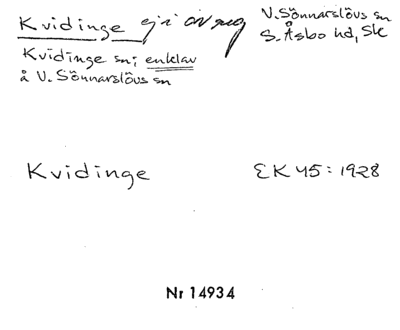 Kvidinge ej i
V. Sönnarslövs sn
S. Åsbo hd, Sk
Kvidinge sn; enklav
å V. Sönnarslövs sn
Kvidinge EK 45: 1928
Nr 14934